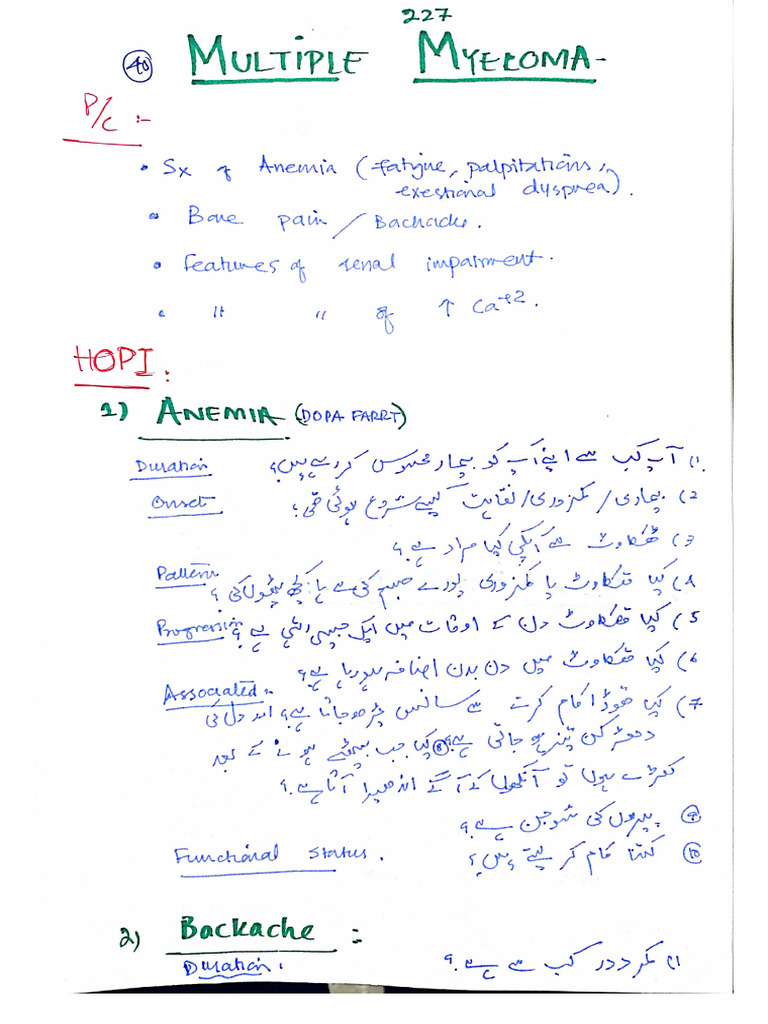 227
40 MULTIPLE MYELOMA -
P/C :-
• Sx of Anemia (fatigue, palpitations, exertional dyspnea).
• Bone pain / Backache.
• Features of renal impairment.
• " " of ↑ Ca+2.
HOPI :
1) ANEMIA (DOPA FARRT)
Duration 1) آپ کب سے اپنے آپ کو بیمار محسوس کر رہے ہیں؟
Onset 2) بیماری / کمزوری / نقاہت کیسے شروع ہوئی تھی؟
3) تھکاوٹ سے آپکی کیا مراد ہے؟
Pattern 4) کیا تھکاوٹ یا کمزوری پورے جسم کی ہے یا کچھ پٹھوں کی؟
Progression 5) کیا تھکاوٹ دن کے اوقات میں ایک جیسی رہتی ہے؟
6) کیا تھکاوٹ میں دن بدن اضافہ ہو رہا ہے؟
Associated :- 7) کیا تھوڑا کام کرنے سے سانس چڑھ جاتا ہے؟ اور دل کی
دھڑکن تیز ہو جاتی ہے؟ 8 کیا جب بیٹھے ہونے کے بعد
کھڑے ہوں تو آنکھوں کے آگے اندھیرا آتا ہے؟
9 پیروں کی سوجن ہے؟
Functional Status. 10 کتنا کام کر لیتے ہیں؟
2) Backache :
Duration : 1) کمر درد کب سے ہے؟